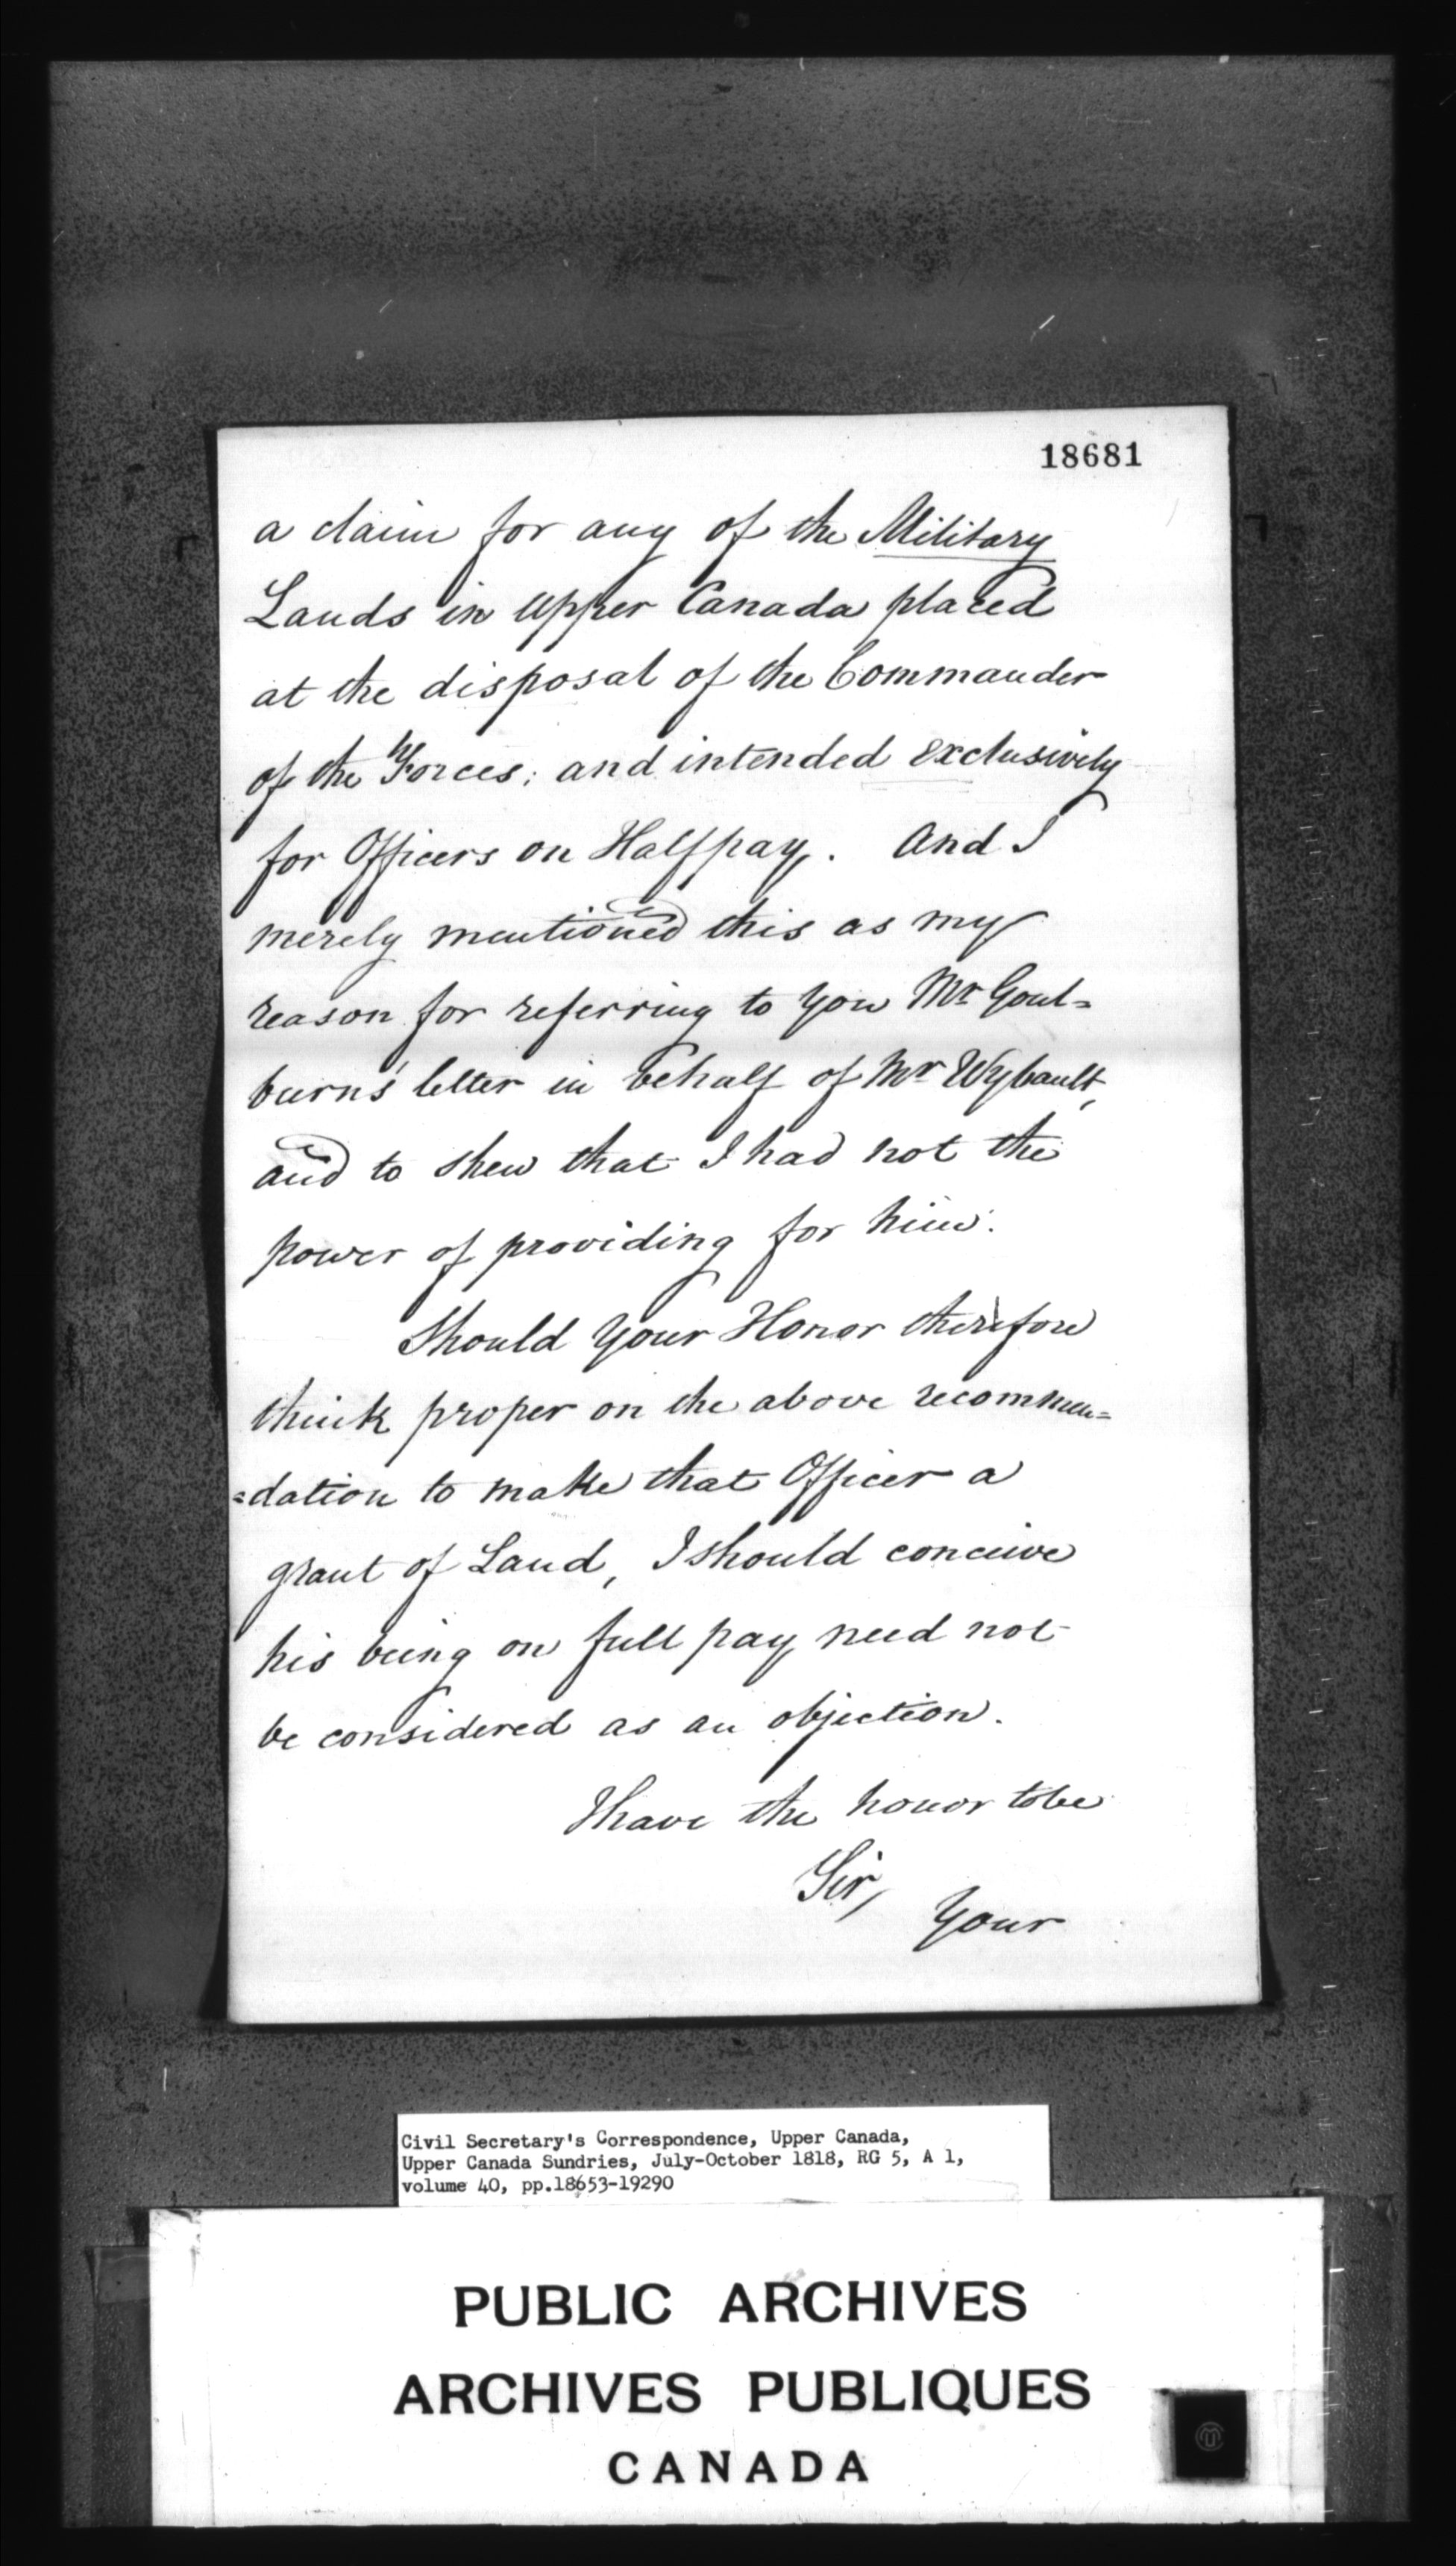 18681
a claim for any of the Military
Lands in Upper Canada placed
at the disposal of the Commander
of the Forces; and intended exclusively
for Officers on Halfpay. And I
merely mentioned this as my
reason for referring to you Mr Goul=
burn's letter in behalf of Mr Wybault,
and to shew that I had not the
power of providing for him.
Should Your Honor therefore
think proper on the above recommen=
=dation to make that Officer a
grant of Land, I should conceive
his being on full pay need not
be considered as an objection.
I have the honor to be
Sir,
Your
Civil Secretary's Correspondence, Upper Canada,
Upper Canada Sundries, July-October 1818, RG 5, A 1,
volume 40, pp.18653-19290
PUBLIC ARCHIVES
ARCHIVES PUBLIQUES
CANADA